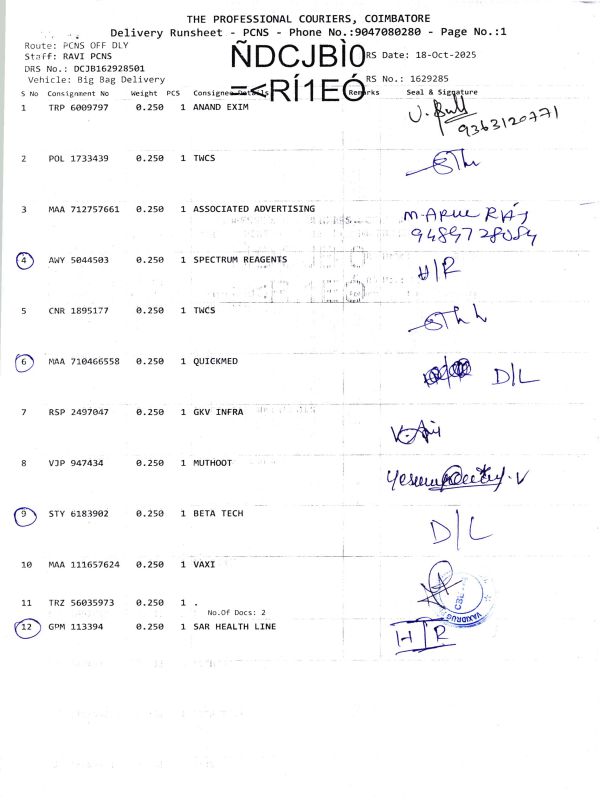 THE PROFESSIONAL COURIERS, COIMBATORE
Delivery Runsheet - PCNS - Phone No.:9047080280 - Page No.:1
Route: PCNS OFF DLY
Staff: RAVI PCNS ÑDCJBÌ0 RS Date: 18-Oct-2025
DRS No.: DCJB162928501
Vehicle: Big Bag Delivery =<RÍ1EÓ RS No.: 1629285
S No Consignment No Weight PCS Consignee Details Remarks Seal & Signature
1 TRP 6009797 0.250 1 ANAND EXIM
9363120771
2 POL 1733439 0.250 1 TWCS
3 MAA 712757661 0.250 1 ASSOCIATED ADVERTISING M. ARUL RAJ
9489728084
4 AWY 5044503 0.250 1 SPECTRUM REAGENTS H/R
5 CNR 1895177 0.250 1 TWCS
6 MAA 710466558 0.250 1 QUICKMED D/L
7 RSP 2497047 0.250 1 GKV INFRA
8 VJP 947434 0.250 1 MUTHOOT
9 STY 6183902 0.250 1 BETA TECH D/L
10 MAA 111657624 0.250 1 VAXI
11 TRZ 56035973 0.250 1 .
No.Of Docs: 2
12 GPM 113394 0.250 1 SAR HEALTH LINE H/R